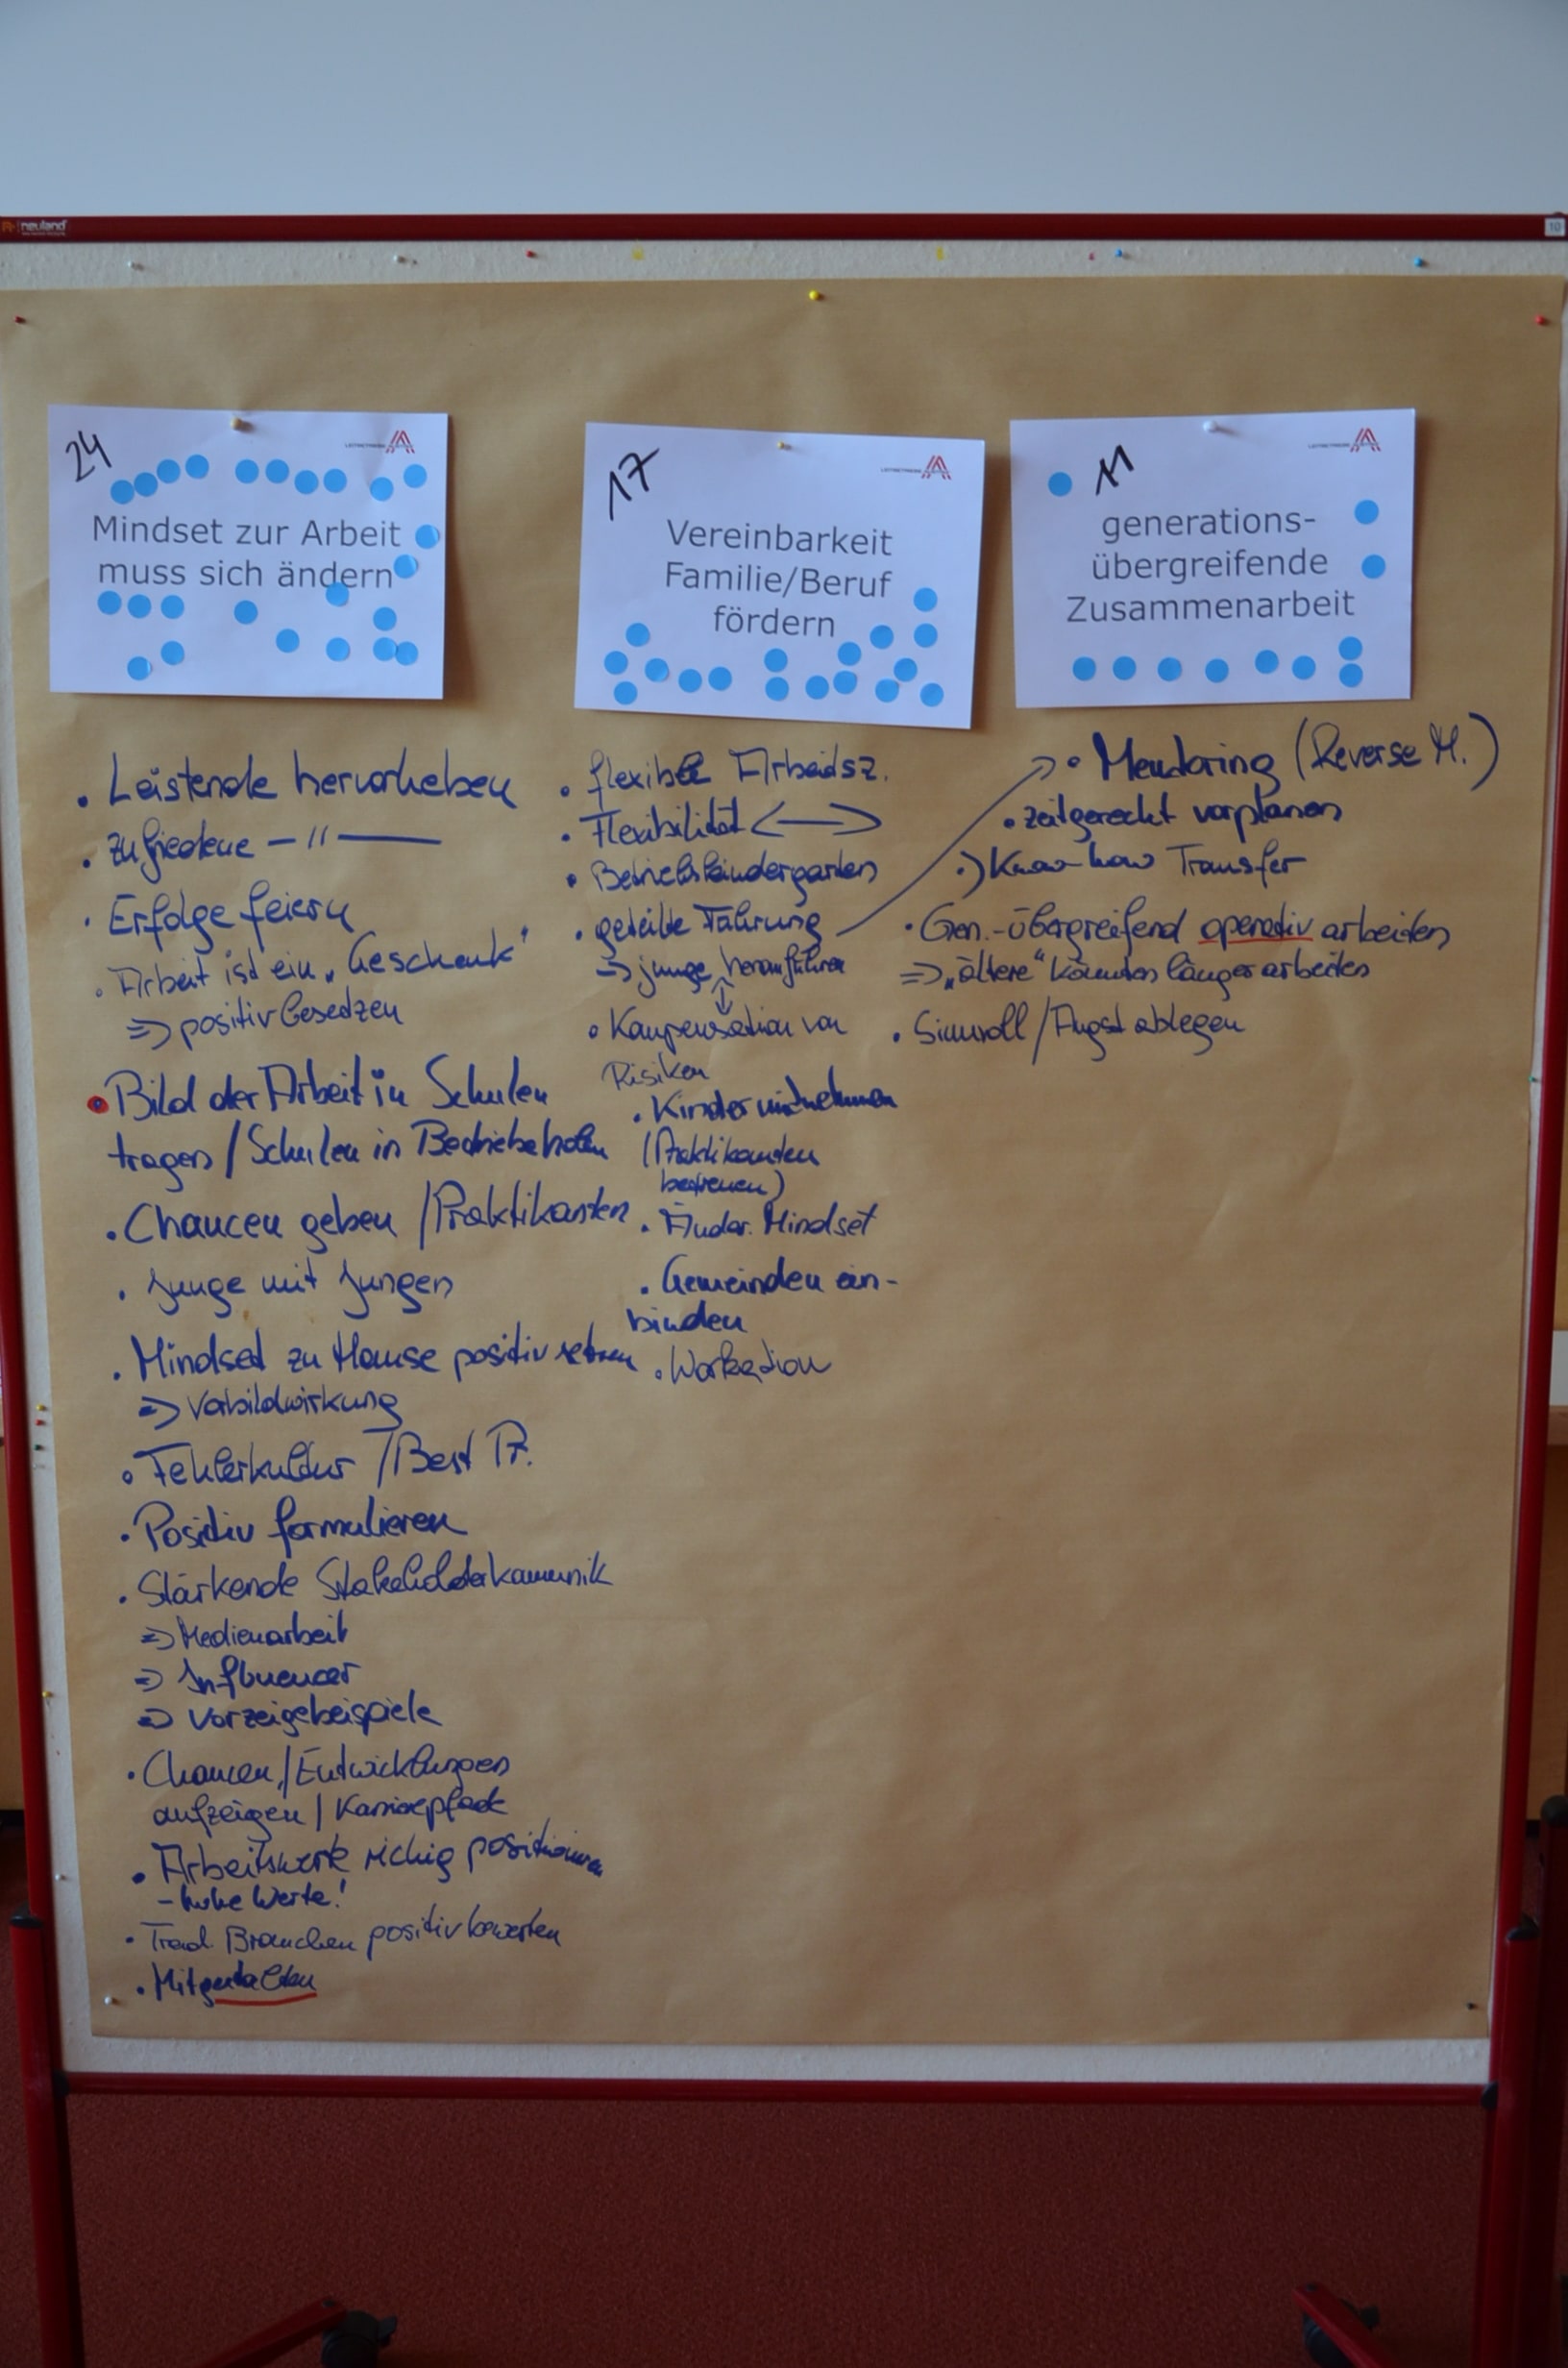 neuland
10
24
Mindset zur Arbeit
muss sich ändern
• Leistende hervorheben
• Zufriedene — " —
• Erfolge feiern
• Arbeit ist ein „Geschenk"
=> positiv besetzen
• Bild der Arbeit in Schulen
tragen / Schulen in Betriebe holen
• Chancen geben / Praktikanten
• Junge mit Jungen
• Mindset zu Hause positiv setzen
=> Vorbildwirkung
• Fehlerkultur / Best Pr.
• Positiv formulieren
• Stärkende Stakeholderkommunik
=> Medienarbeit
=> Influencer
=> Vorzeigebeispiele
• Chancen / Entwicklungen
aufzeigen / Karrierepfade
• Arbeitswerte richtig positionieren
- hohe Werte!
• Trad. Branchen positiv bewerten
• Mitgestalten
17
Vereinbarkeit
Familie/Beruf
fördern
• flexible Arbeitsz.
• Flexibilität <—>
• Betriebskindergarten
• geteilte Führung
=> junge heranführen
• Kompensation von
Risiken
• Kinder mitnehmen
(Praktikanten
betreuen)
• Änder. Mindset
• Gemeinden ein-
binden
• Workation
11
generations-
übergreifende
Zusammenarbeit
• Mentoring (Reverse M.)
• zeitgerecht vorplanen
•) Know-how Transfer
• Gen.-übergreifend operativ arbeiten
=> „ältere" könnten länger arbeiten
• Sinnvoll / Angst ablegen